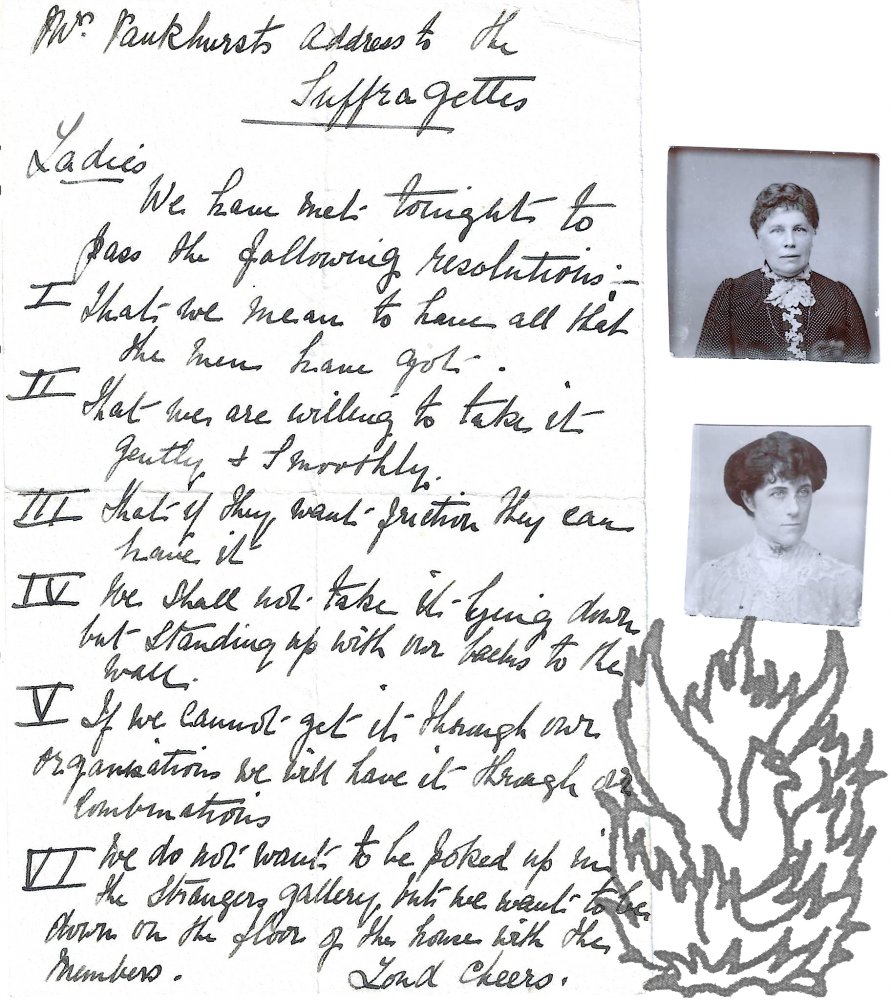 Mrs. Pankhursts Address to the
Suffragettes
Ladies
We have met tonight to
pass the following resolutions:—
I That we mean to have all that
the men have got.
II That we are willing to take it
gently & Smoothly.
III That if they want friction they can
have it
IV We shall not take it lying down
but standing up with our backs to the
wall.
V If we cannot get it through our
organisations we will have it through our
Combinations
VI We do not want to be poked up in
the Strangers gallery, but we want to be
down on the floor of the house with the
Members. Loud Cheers.